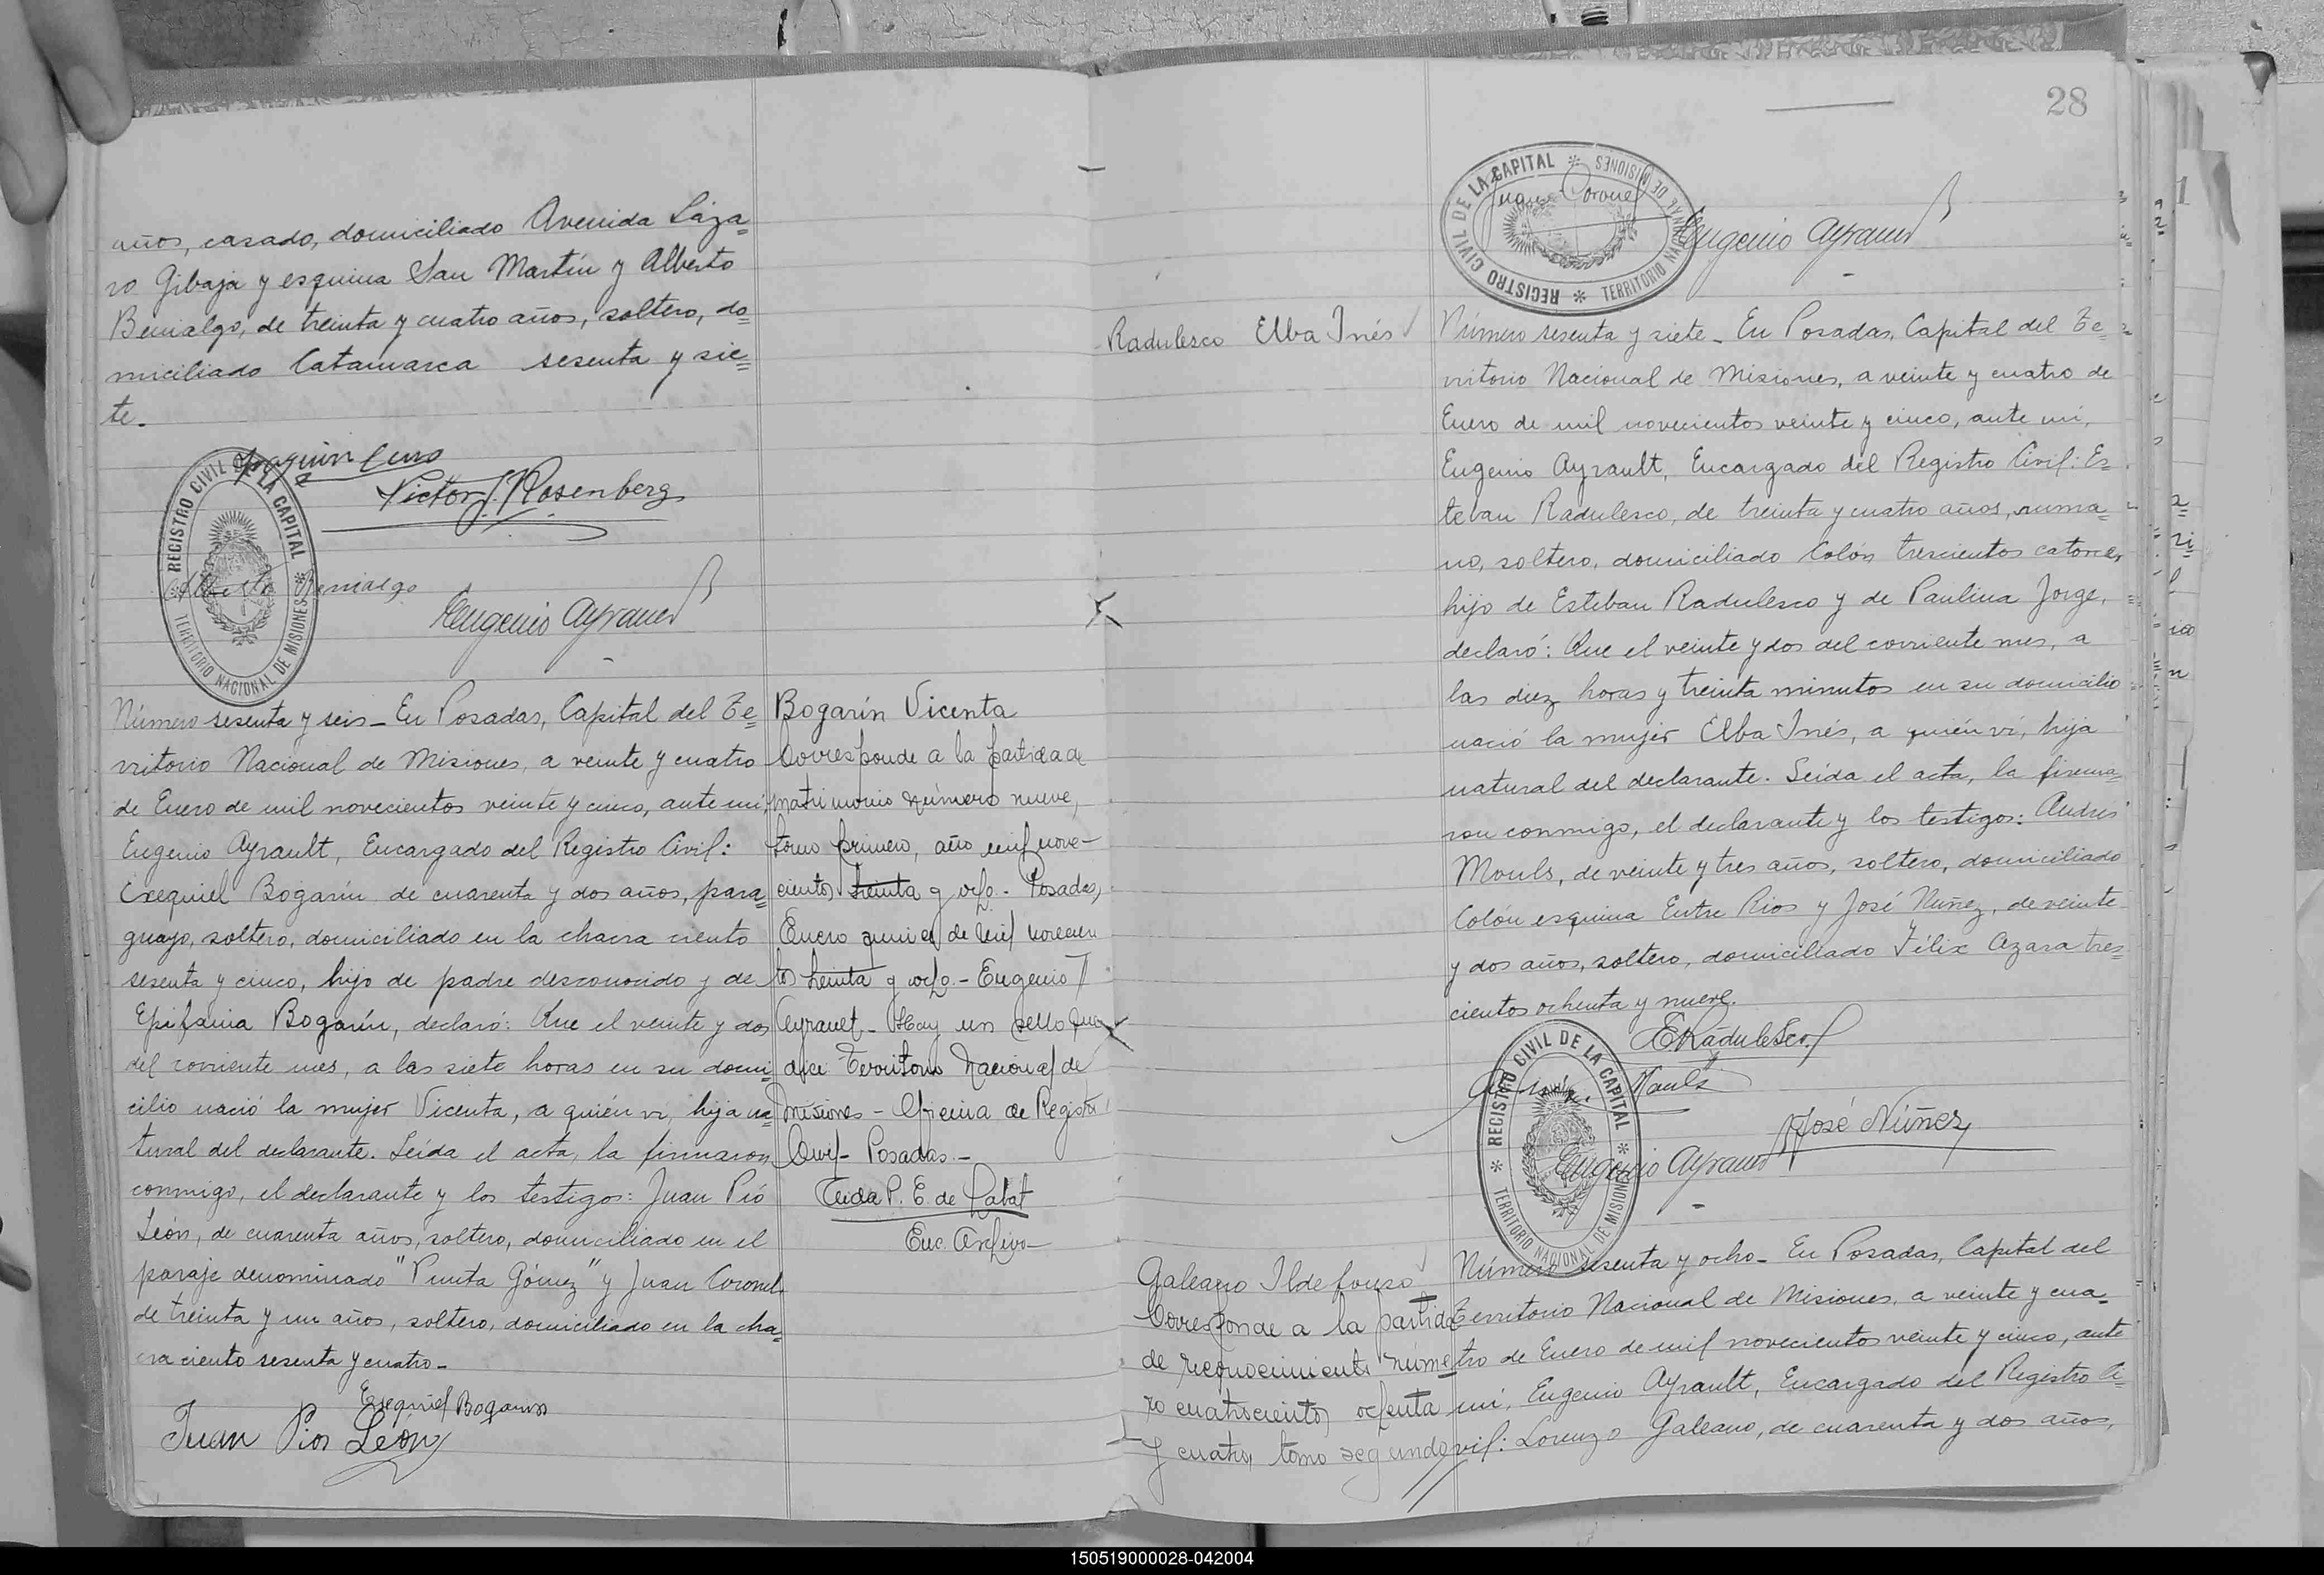 años, casado, domiciliado Avenida Láza=
ro Gibaja y esquina San Martín y Alberto
Benialgo, de treinta y cuatro años, soltero, do=
miciliado Catamarca sesenta y sie=
te.-
Joaquín
Victor J. Rosenberg
REGISTRO CIVIL DE LA CAPITAL * TERRITORIO NACIONAL DE MISIONES *
Alberto Benialgo
Eugenio Ayrault
Número sesenta y seis_ En Posadas, Capital del Te=
rritorio Nacional de Misiones, a veinte y cuatro
de Enero de mil novecientos veinte y cinco, ante mi,
Eugenio Ayrault, Encargado del Registro Civil:
Exequiel Bogarín de cuarenta y dos años, para=
guayo, soltero, domiciliado en la chacra ciento
sesenta y cinco, hijo de padre desconocido y de
Epifania Bogarín, declaró: Que el veinte y dos
del corriente mes, a las siete horas en su domi=
cilio nació la mujer Vicenta, a quién vi, hija na=
tural del declarante. Leída el acta, la firmaron
conmigo, el declarante y los testigos: Juan Pió
León, de cuarenta años, soltero, domiciliado en el
paraje denominado "Punta Gómez" y Juan Coronel
de treinta y un años, soltero, domiciliado en la cha=
cra ciento sesenta y cuatro_
Exequiel Bogarin
Juan Pio León
Bogarín Vicenta
Corresponde a la partida de
matrimonio número nueve,
tomo primero, año mil nove-
cientos treinta y ocho.- Posadas,
Enero quince de mil novecien
tos treinta y ocho.- Eugenio
Ayrault_ Hay un sello que
dice Territorio Nacional de
Misiones - Oficina de Registro
Civil- Posadas.-
P. E. de Labat
Enc. Archivo
28
REGISTRO CIVIL DE LA CAPITAL * TERRITORIO NACIONAL DE MISIONES *
Juan Coronel
Eugenio Ayrault
Radulesco Elba Inés
Número sesenta y siete_ En Posadas, Capital del Te=
rritorio Nacional de Misiones, a veinte y cuatro de
Enero de mil novecientos veinte y cinco, ante mi,
Eugenio Ayrault, Encargado del Registro Civil: Es=
teban Radulesco, de treinta y cuatro años, ruma=
no, soltero, domiciliado Colón trescientos catorce,
hijo de Esteban Radulesco y de Paulina Jorge,
declaró: Que el veinte y dos del corriente mes, a
las diez horas y treinta minutos en su domicilio
nació la mujer Elba Inés, a quién vi, hija
natural del declarante. Leída el acta, la firma=
ron conmigo, el declarante y los testigos: Andrés
Mouls, de veinte y tres años, soltero, domiciliado
Colón esquina Entre Rios y José Nuñez, de veinte
y dos años, soltero, domiciliado Félix Azara tres=
cientos ochenta y nueve.
ERadulesco
Mouls
José Núñez
REGISTRO CIVIL DE LA CAPITAL * TERRITORIO NACIONAL DE MISIONES *
Eugenio Ayrault
Galeano Ildefonso
Corresponde a la partida
de reconocimiento núme
ro cuatrocientos ochenta
y cuatro, tomo segundo
Número sesenta y ocho_ En Posadas, Capital del
Territorio Nacional de Misiones, a veinte y cua=
tro de Enero de mil novecientos veinte y cinco, ante
mi, Eugenio Ayrault, Encargado del Registro Ci=
vil: Lorenzo Galeano, de cuarenta y dos años,
150519000028-042004